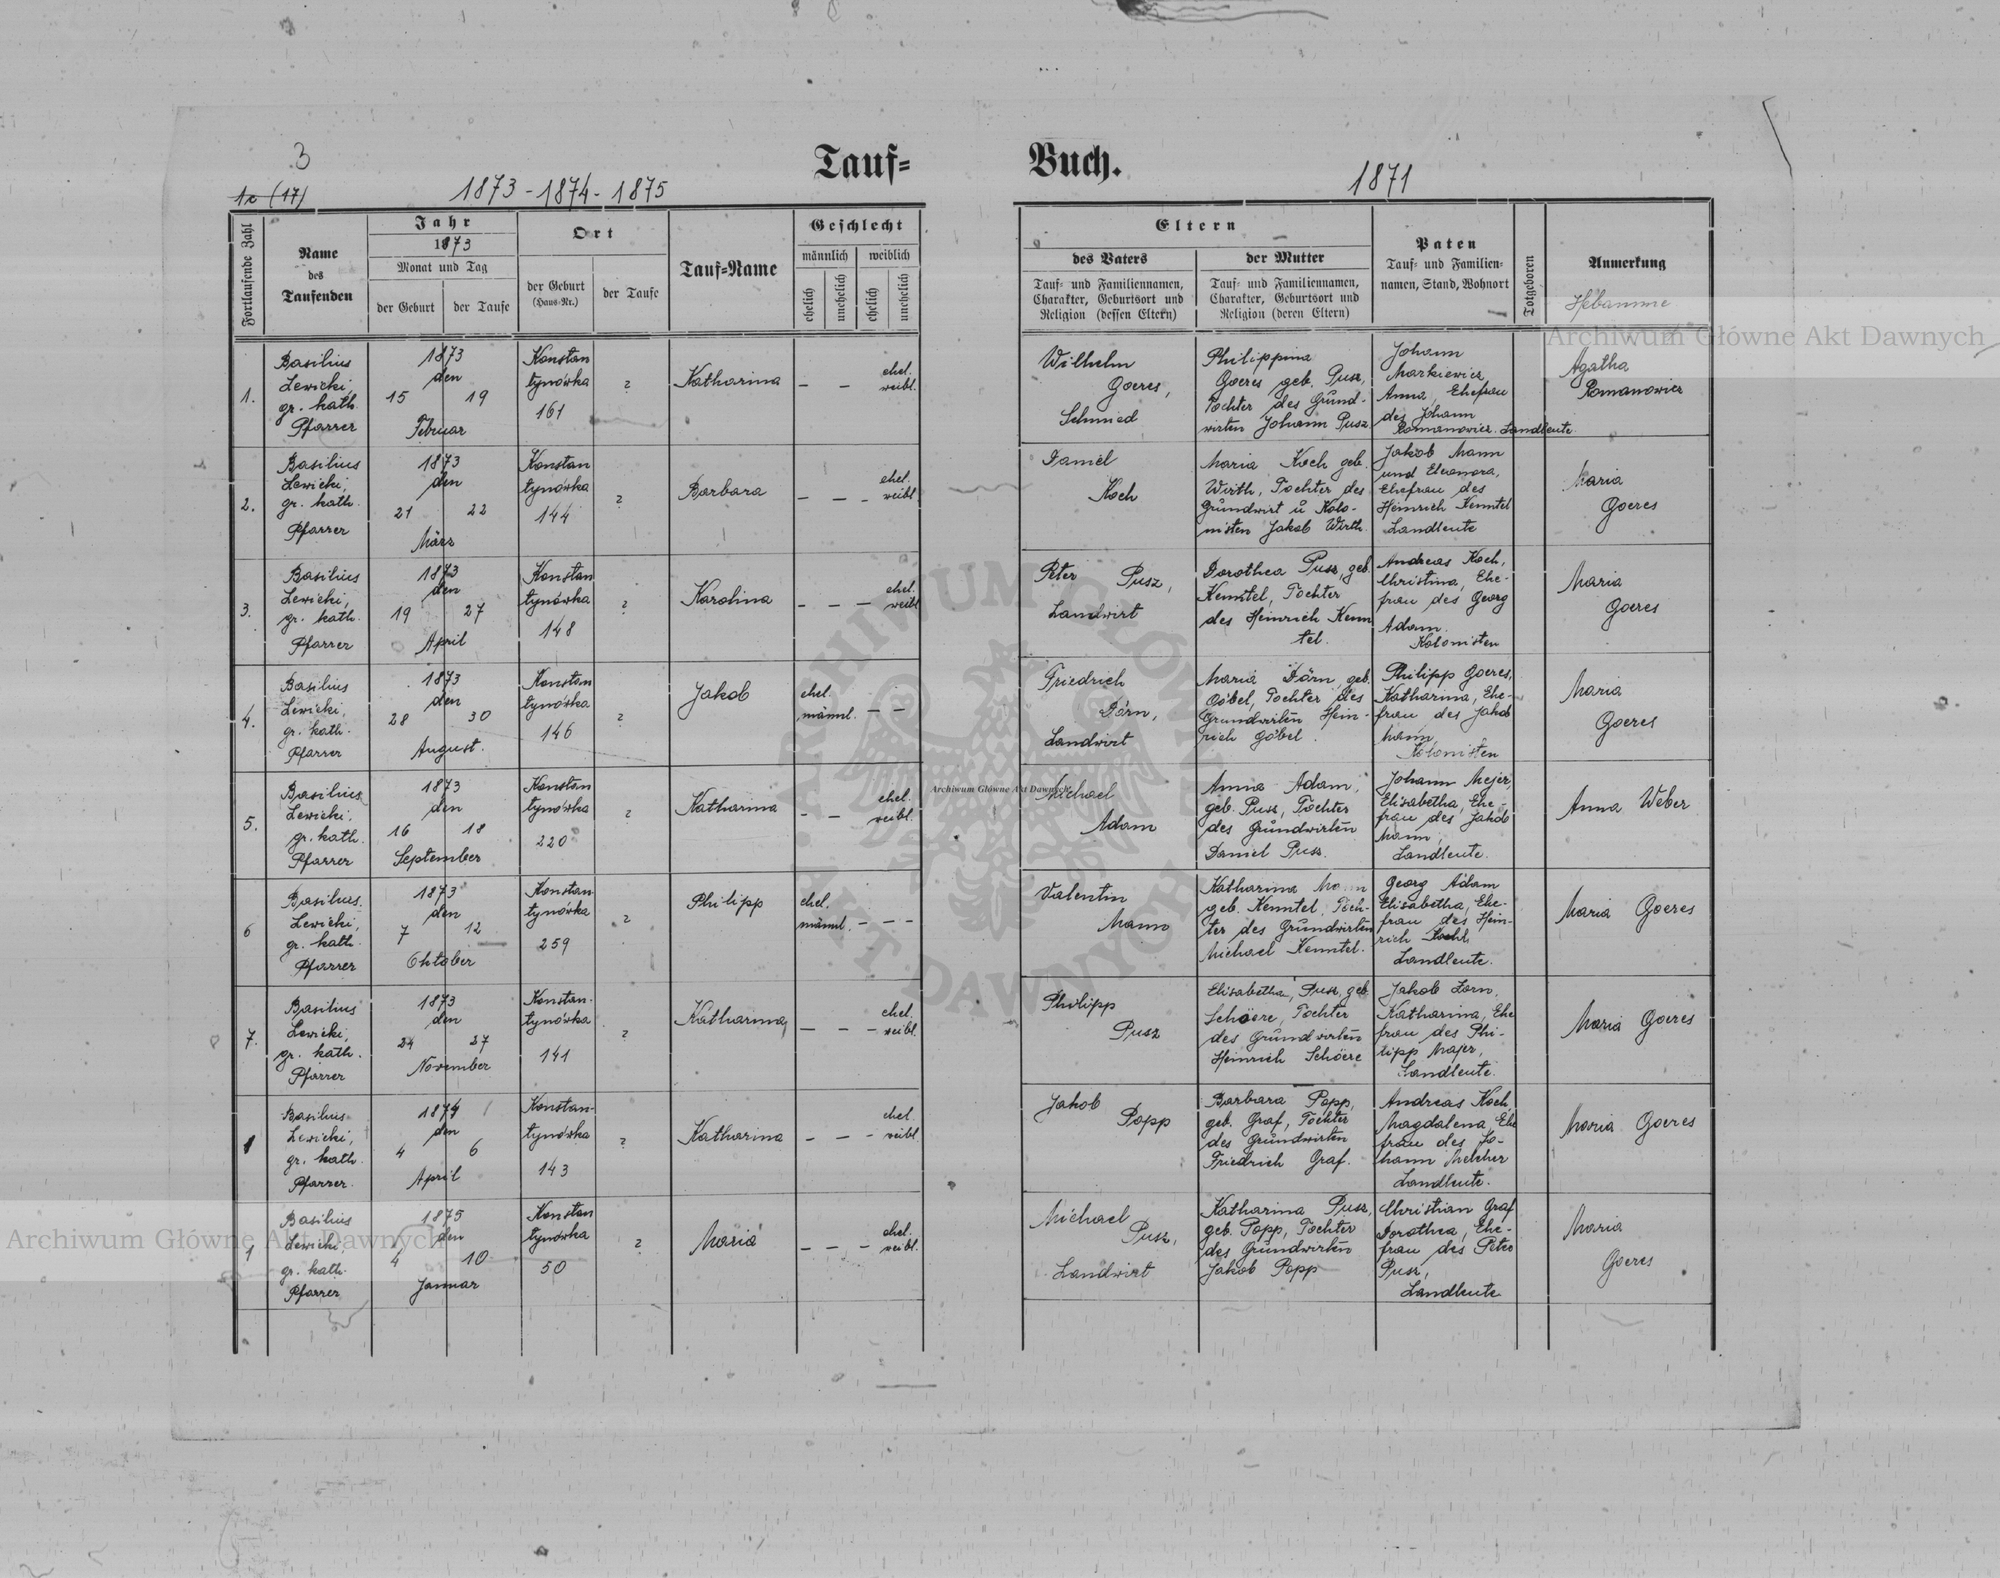 3
Tauf=
Buch.
1c (17)
1873 - 1874 - 1875
1871
Fortlaufende Zahl
Name
des
Taufenden
Jahr
1873
Monat und Tag
der Geburt
der Taufe
Ort
der Geburt
(Haus-Nr.)
der Taufe
Tauf=Name
Geschlecht
männlich
weiblich
ehelich
unehelich
ehelich
unehelich
Eltern
des Vaters
Tauf= und Familiennamen,
Charakter, Geburtsort und
Religion (dessen Eltern)
der Mutter
Tauf= und Familiennamen,
Charakter, Geburtsort und
Religion (deren Eltern)
Paten
Tauf= und Familien-
namen, Stand, Wohnort
Totgeboren
Anmerkung
Hebamme
1.
Basilius
Lewicki,
gr. kath.
Pfarrer
1873
den
15 19
Februar
Konstan
tynówka
161
?
Katharina
— —
ehel.
weibl.
Wilhelm
Goeres,
Schmied
Philippina
Goeres geb. Pusz,
Tochter des Grund-
wirten Johann Pusz
Johann
Markiewicz
Anna, Ehefrau
des Johann
Romanowicz. Landleute.
Agatha
Romanowicz
2.
Basilius
Lewicki,
gr. kath.
Pfarrer
1873
den
21 22
März
Konstan
tynówka
144
?
Barbara
— — -
ehel.
weibl.
Daniel
Koch
Maria Koch geb.
Wirth, Tochter des
Grundwirt u Kolo-
nisten Jakob Wirth.
Jakob Mann
und Eleonora,
Ehefrau des
Heinrich Kenntel
Landleute
Maria
Goeres
3.
Basilius
Lewicki,
gr. kath.
Pfarrer
1873
den
19 27
April
Konstan
tynówka
148
?
Karolina
— — —
ehel.
weibl
Peter Pusz,
Landwirt
Dorothea Pusz, geb.
Kenntel, Tochter
des Heinrich Kenn
tel.
Andreas Koch,
Christina, Ehe-
frau des Georg
Adam.
Kolonisten
Maria
Goeres
4.
Basilius
Lewicki,
gr. kath.
Pfarrer
1873
den
28 30
August.
Konstan
tynówka
146
?
Jakob
ehel.
männl. — —
Friedrich
Dörn,
Landwirt
Maria Dörn, geb.
Göbel, Tochter des
Grundwirten Hein-
rich Göbel.
Philipp Goeres,
Katharina, Ehe-
frau des Jakob
Mann,
Kolonisten
Maria
Goeres
5.
Basilius
Lewicki,
gr. kath.
Pfarrer
1873
den
16 18
September
Konstan
tynówka
220
?
Katharina
- —
ehel.
weibl.
Michael
Adam
Anna Adam,
geb. Pusz, Tochter
des Grundwirten
Daniel Pusz.
Johann Mejer,
Elisabetha, Ehe-
frau des Jakob
Mann,
Landleute.
Anna Weber
6
Basilius
Lewicki,
gr. kath.
Pfarrer
1873
den
7 12
Oktober
Konstan
tynówka
259
?
Philipp
ehel.
männl. — — -
Valentin
Mann
Katharina Mann
geb. Kenntel, Toch-
ter des Grundwirten
Michael Kenntel.
Georg Adam
Elisabetha, Ehe-
frau des Hein-
rich
Landleute.
Maria Goeres
7.
Basilius
Lewicki,
gr. kath.
Pfarrer
1873
den
24 27
November
Konstan-
tynówka
141
?
Katharina
— — —
ehel.
weibl.
Philipp
Pusz
Elisabetha, Pusz, geb
Schöere, Tochter
des Grundwirten
Heinrich Schöere
Jakob Lorn,
Katharina, Ehe
frau des Phi-
lipp Majer,
Landleute.
Maria Goeres
1
Basilius
Lewicki,
gr. kath.
Pfarrer.
1874
den
4 6
April
Konstan-
tynówka
143
?
Katharina
— — -
ehel.
weibl.
Jakob
Popp
Barbara Popp,
geb. Graf, Tochter
des Grundwirten
Friedrich Graf.
Andreas Koch
Magdalena, Ehe
frau des Jo-
hann Melcher
Landleute.
Maria Goeres
1
Basilius
Lewicki,
gr. kath.
Pfarrer
1875
den
4 10
Januar
Konstan
tynówka
50
?
Maria
— — —
ehel.
weibl.
Michael
Pusz,
Landwirt
Katharina Pusz,
geb. Popp, Tochter
des Grundwirten
Jakob Popp
Christian Graf
Dorothea, Ehe-
frau des Peter
Pusz,
Landleute
Maria
Goeres
Archiwum Główne Akt Dawnych
Archiwum Główne Akt Dawnych
Archiwum Główne Akt Dawnych
ARCHIWUM GŁÓWNE AKT DAWNYCH